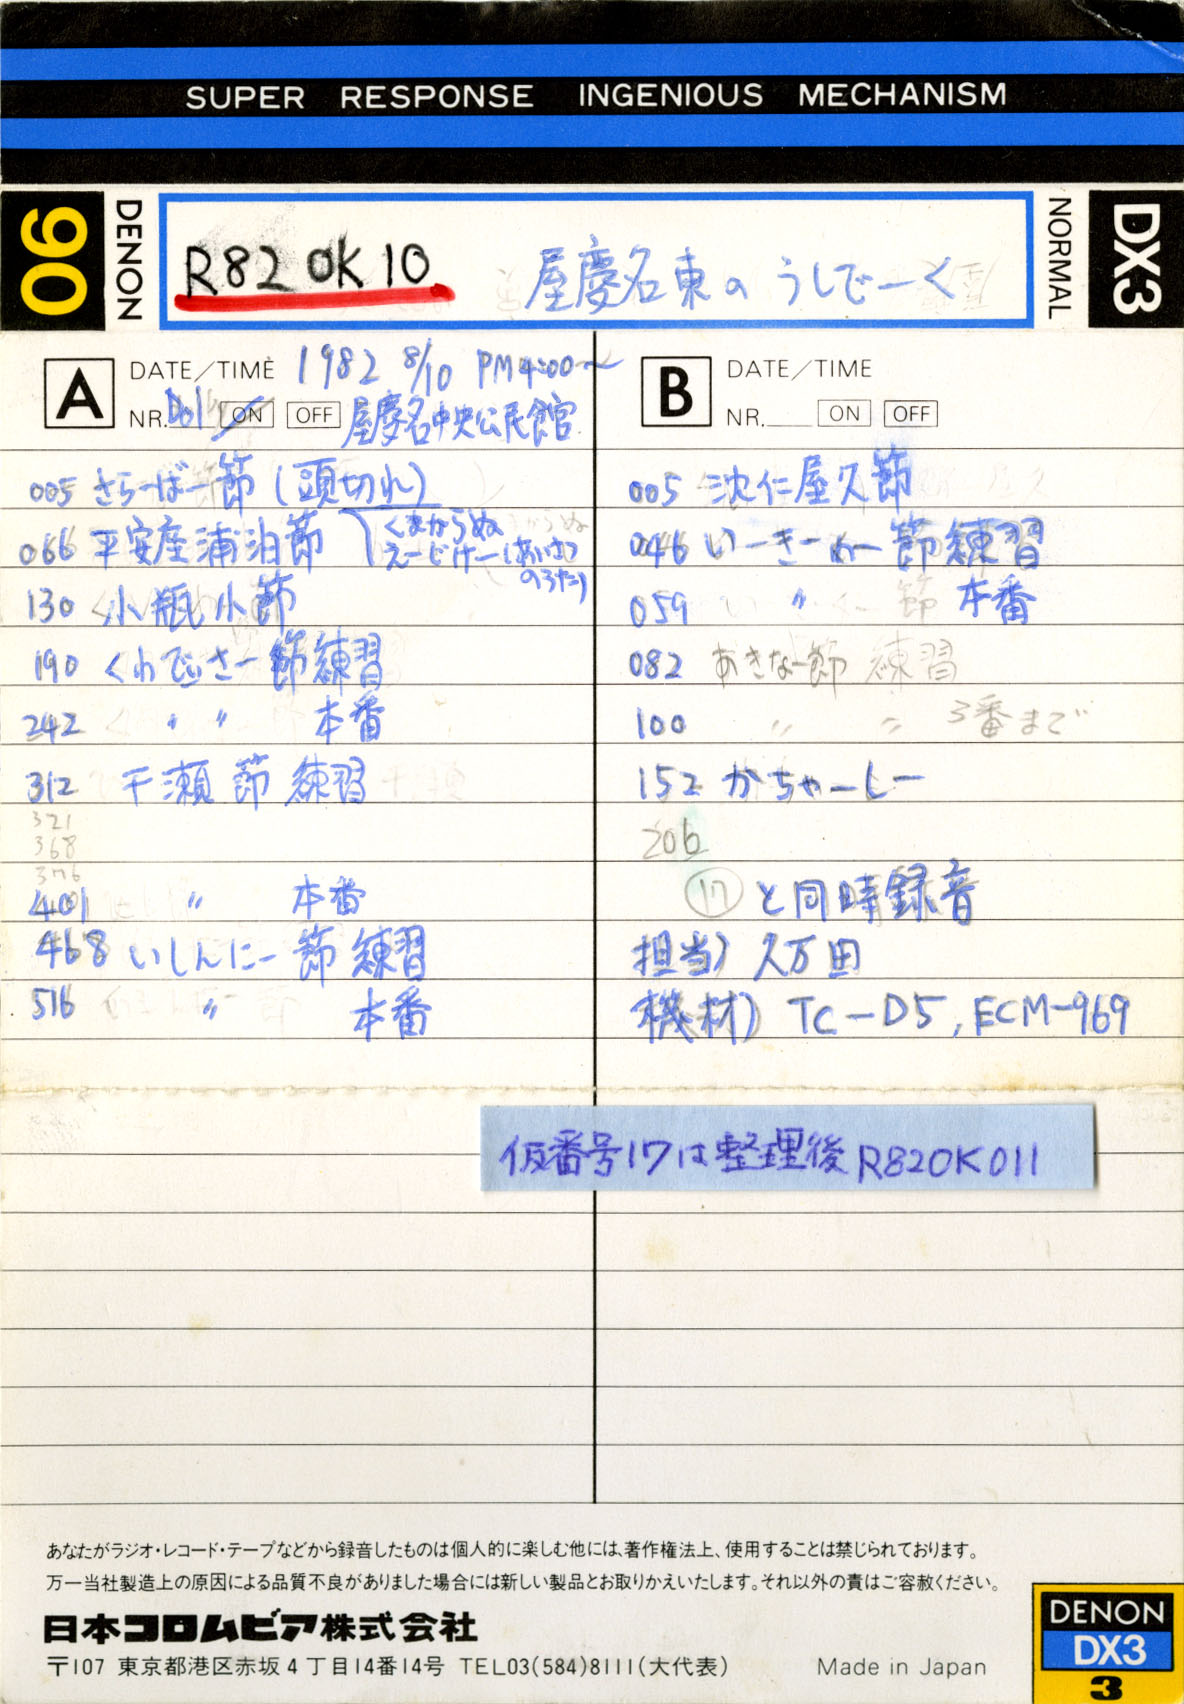 SUPER RESPONSE INGENIOUS MECHANISM
90
DENON
R82 OK 10
屋慶名東のうしでーく
NORMAL
DX3
A DATE/TIME 1982 8/10 PM4:00〜
NR. ON OFF 屋慶名中央公民館
005 さらーばー節 (頭切れ)
066 平安座浦泊節
くまからぬ
えーじけー(あいさつ
のうた)
130 小瓶小節
190 くわでぃさー節練習
242 〃 〃 本番
312 干瀬節 練習
321
368
376
401 〃 本番
468 いしんにー節 練習
516 〃 本番
B DATE/TIME
NR. ON OFF
005 沈仁屋久節
046 いーきーゎー節練習
059 〃 本番
082 あきなー節 練習
100 〃 〃 3番まで
152 かちゃーしー
206
⑰と同時録音
担当) 久万田
機材) TC-D5, ECM-969
仮番号17は整理後R82OK011
あなたがラジオ・レコード・テープなどから録音したものは個人的に楽しむ他には、著作権法上、使用することは禁じられております。
万一当社製造上の原因による品質不良がありました場合には新しい製品とお取りかえいたします。それ以外の責はご容赦ください。
日本コロムビア株式会社
〒107 東京都港区赤坂4丁目14番14号 TEL03(584)8111(大代表)
Made in Japan
DENON
DX3
3